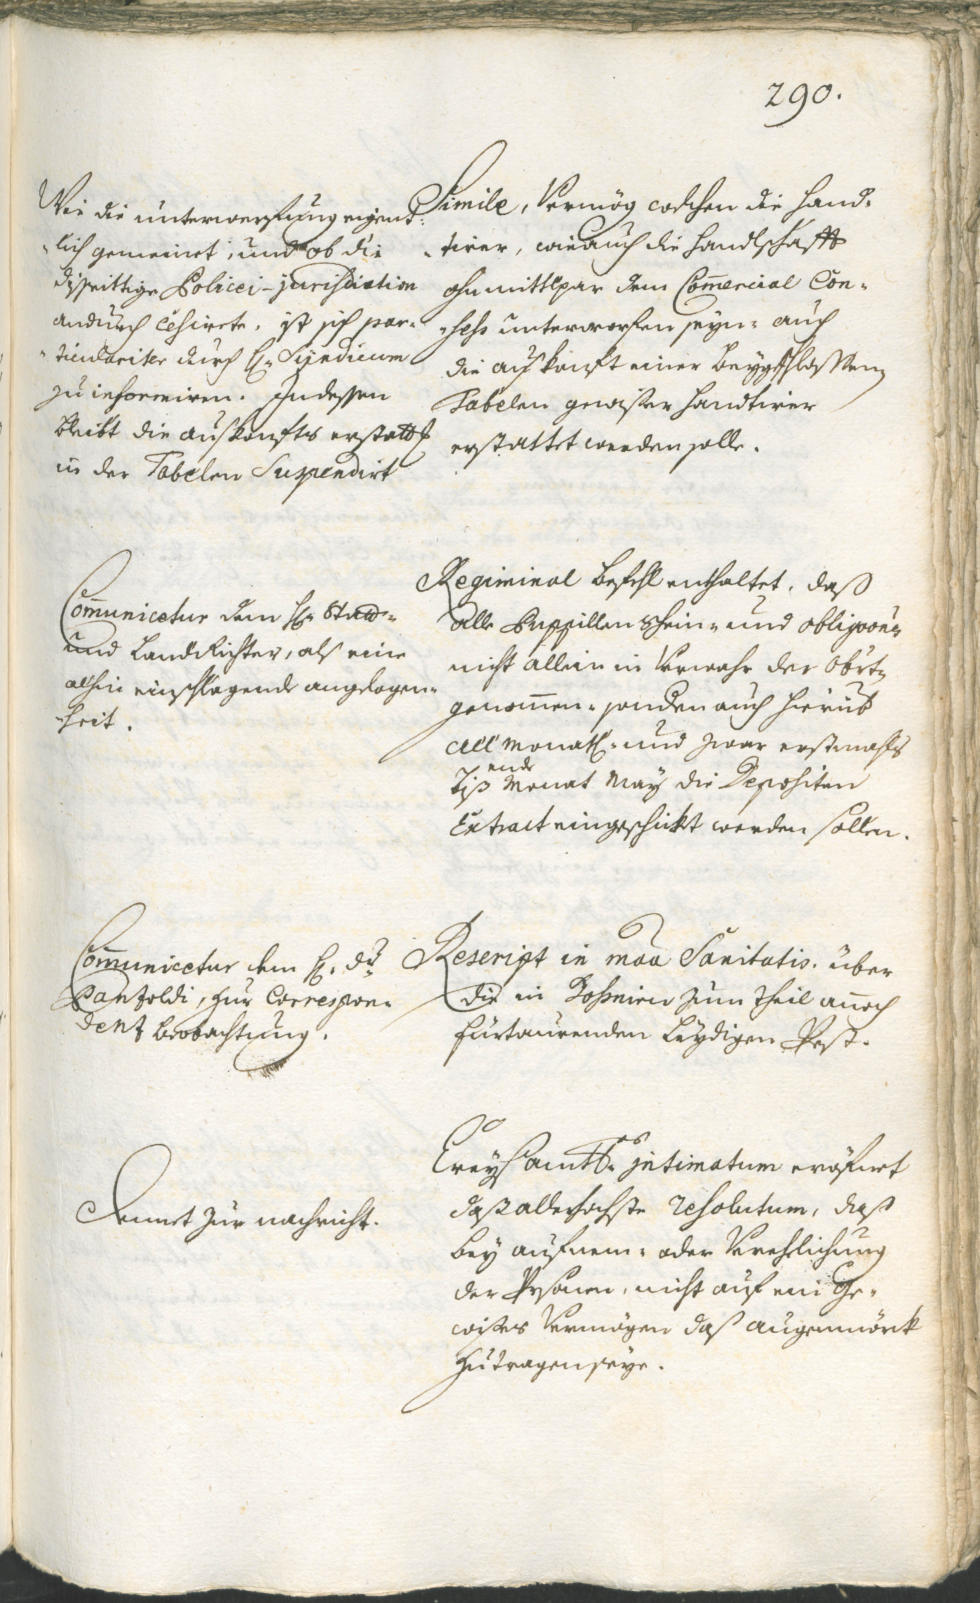 290.
Wie die unterwerffung eigent-
-lich gemeinet, und ob die
disseittige Policei-jurisdiction
andurch cessirete, ist sich par-
-ticulariter durch H: Syndicum
zu informiren. Indessen
bleibt die auskonffts erstattg
in der Tabelen Suspendirt
Simile, Vermög welchen die Hand-
-tirer, wie auch die Handlschafft
ohnmittlpar dem Com̄ercial Con-
-sess unterworffen seyn: auch
die auskonft einer beygeschlossen
Tabelen gewisser Handtirer
erstattet werden solle.
Com̄unicetur dem H: Stadt-
und LandRichter, als eine
alhin einschlagende angelegen-
-heit.
Regiminal Befehl enthaltet, daß
alle Puppillen schein- und obligaōns
nicht allein in Verwahr der obrt:
genom̄en- sonderen auch hierüb
all monatl: und zwar erstmahls
ende
diß Monat May die Depositen
Extract eingeschickt werden sollen.
Com̄unicetur dem H: Dr.
Panzoldi, zur Correspon-
dent beobachtung.
Rescript in māa Sanitatis. über
die in Bossnien zum theil annoch
fürtaurenden leydigen Pest.
Dienet zur nachricht.
CreysSambts: jntimatum eröfnet
daß allerhöchste resolutum, daß
bey aufnem- oder Verehlichung
der Persohnen, nicht auf ein Ge-
wisses Vermögen daß augenmörck
zu tragen seye.